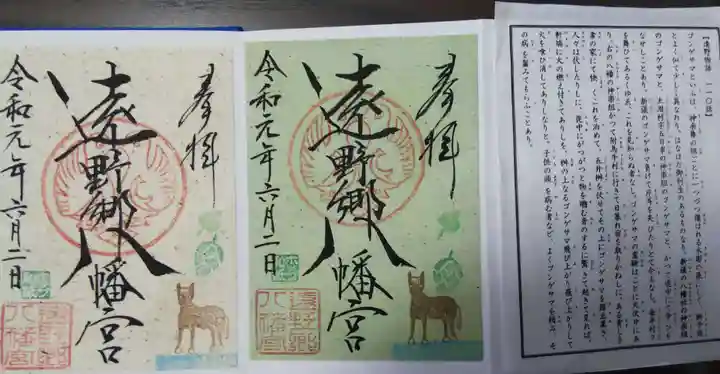 【遠野物語 一一〇話】
ゴンゲサマといふは、神楽舞の組ごとに一つづつ備はれる木彫の像にして、獅子頭
とよく似て少しく異なれり。はなはだ御利生のあるものなり。新張の八幡社の神楽組
のゴンゲサマと、土淵村字五日市の神楽組のゴンゲサマと、かつて途中にて争ひを
なせしことあり。新張のゴンゲサマ負けて片耳を失ひたりとて今もなし。毎年村々
を舞ひてあるく故、これを見知らぬ者なし。ゴンゲサマの霊験はことに火伏にあ
り。右の八幡の神楽組かつて附馬牛村に行きて日暮れ宿を取りかねしに、ある貧しき
者の家にて快くこれを泊めて、五升桝を伏せてその上にゴンゲサマを座ゑ置き、
人々は伏したりしに、夜中にがつがつと物を噛む音のするに驚きて起きて見れば、
軒端に火の燃え付きてありしを、桝の上なるゴンゲサマ飛び上がり飛び上がりして
火を食ひ消してありしなりと。子供の頭を病む者など、よくゴンゲサマを頼み、そ
の病を噛みてもらふことあり。
奉拝
遠野郷八幡宮
令和元年六月二日
遠野郷
八幡宮
奉拝
遠野郷八幡宮
令和元年六月二日
遠野郷
八幡宮